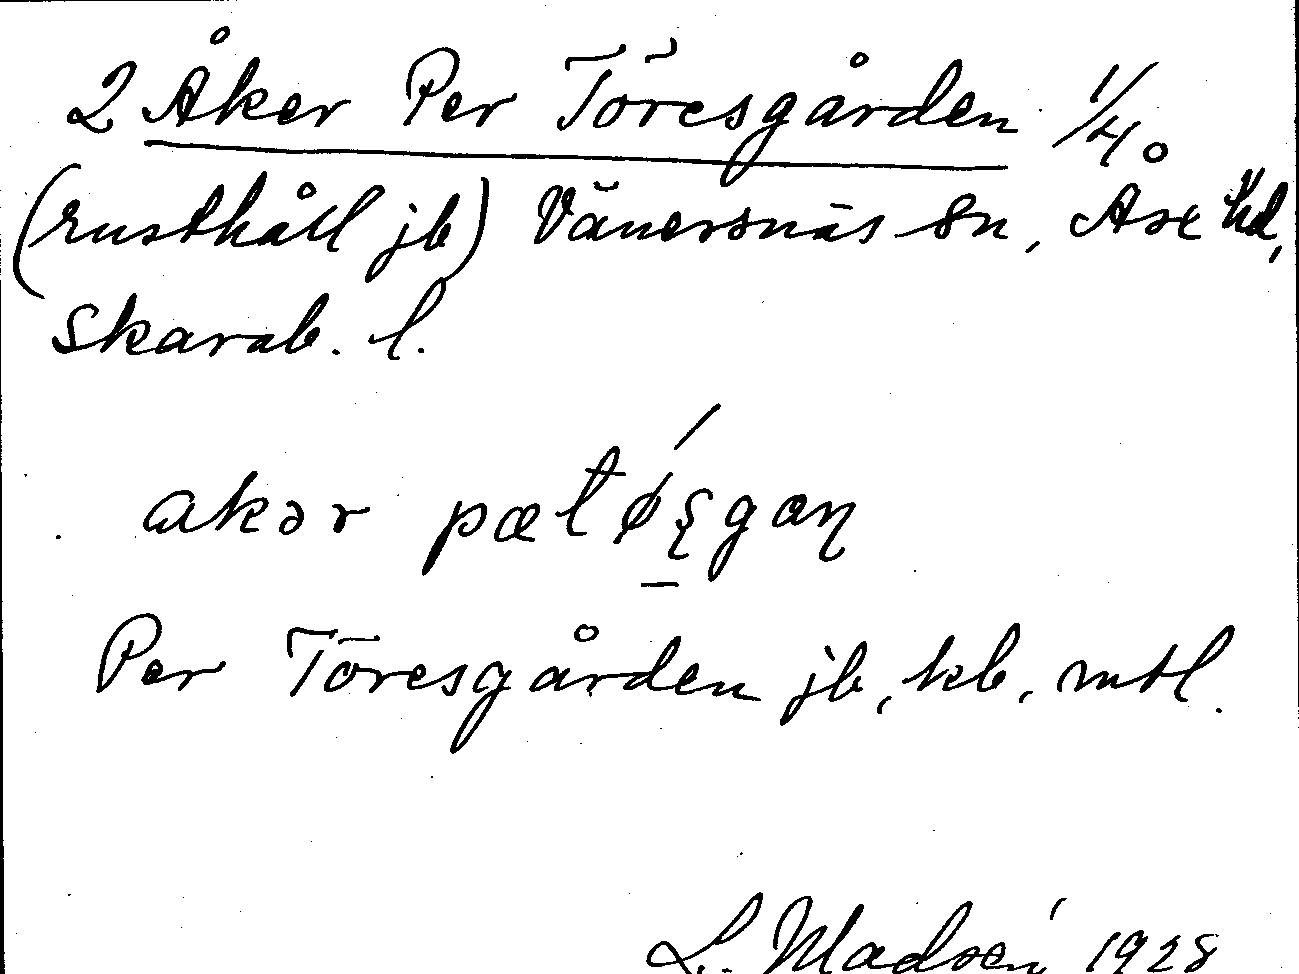 2 Åker Per Töresgården 1/4
(rusthåll jb) Vänersnäs sn, Åse hd,
Skarab. l.
akər pætǿʂgaɳ
Per Töresgården jb, kb, mtl.
L. Madsén 1928